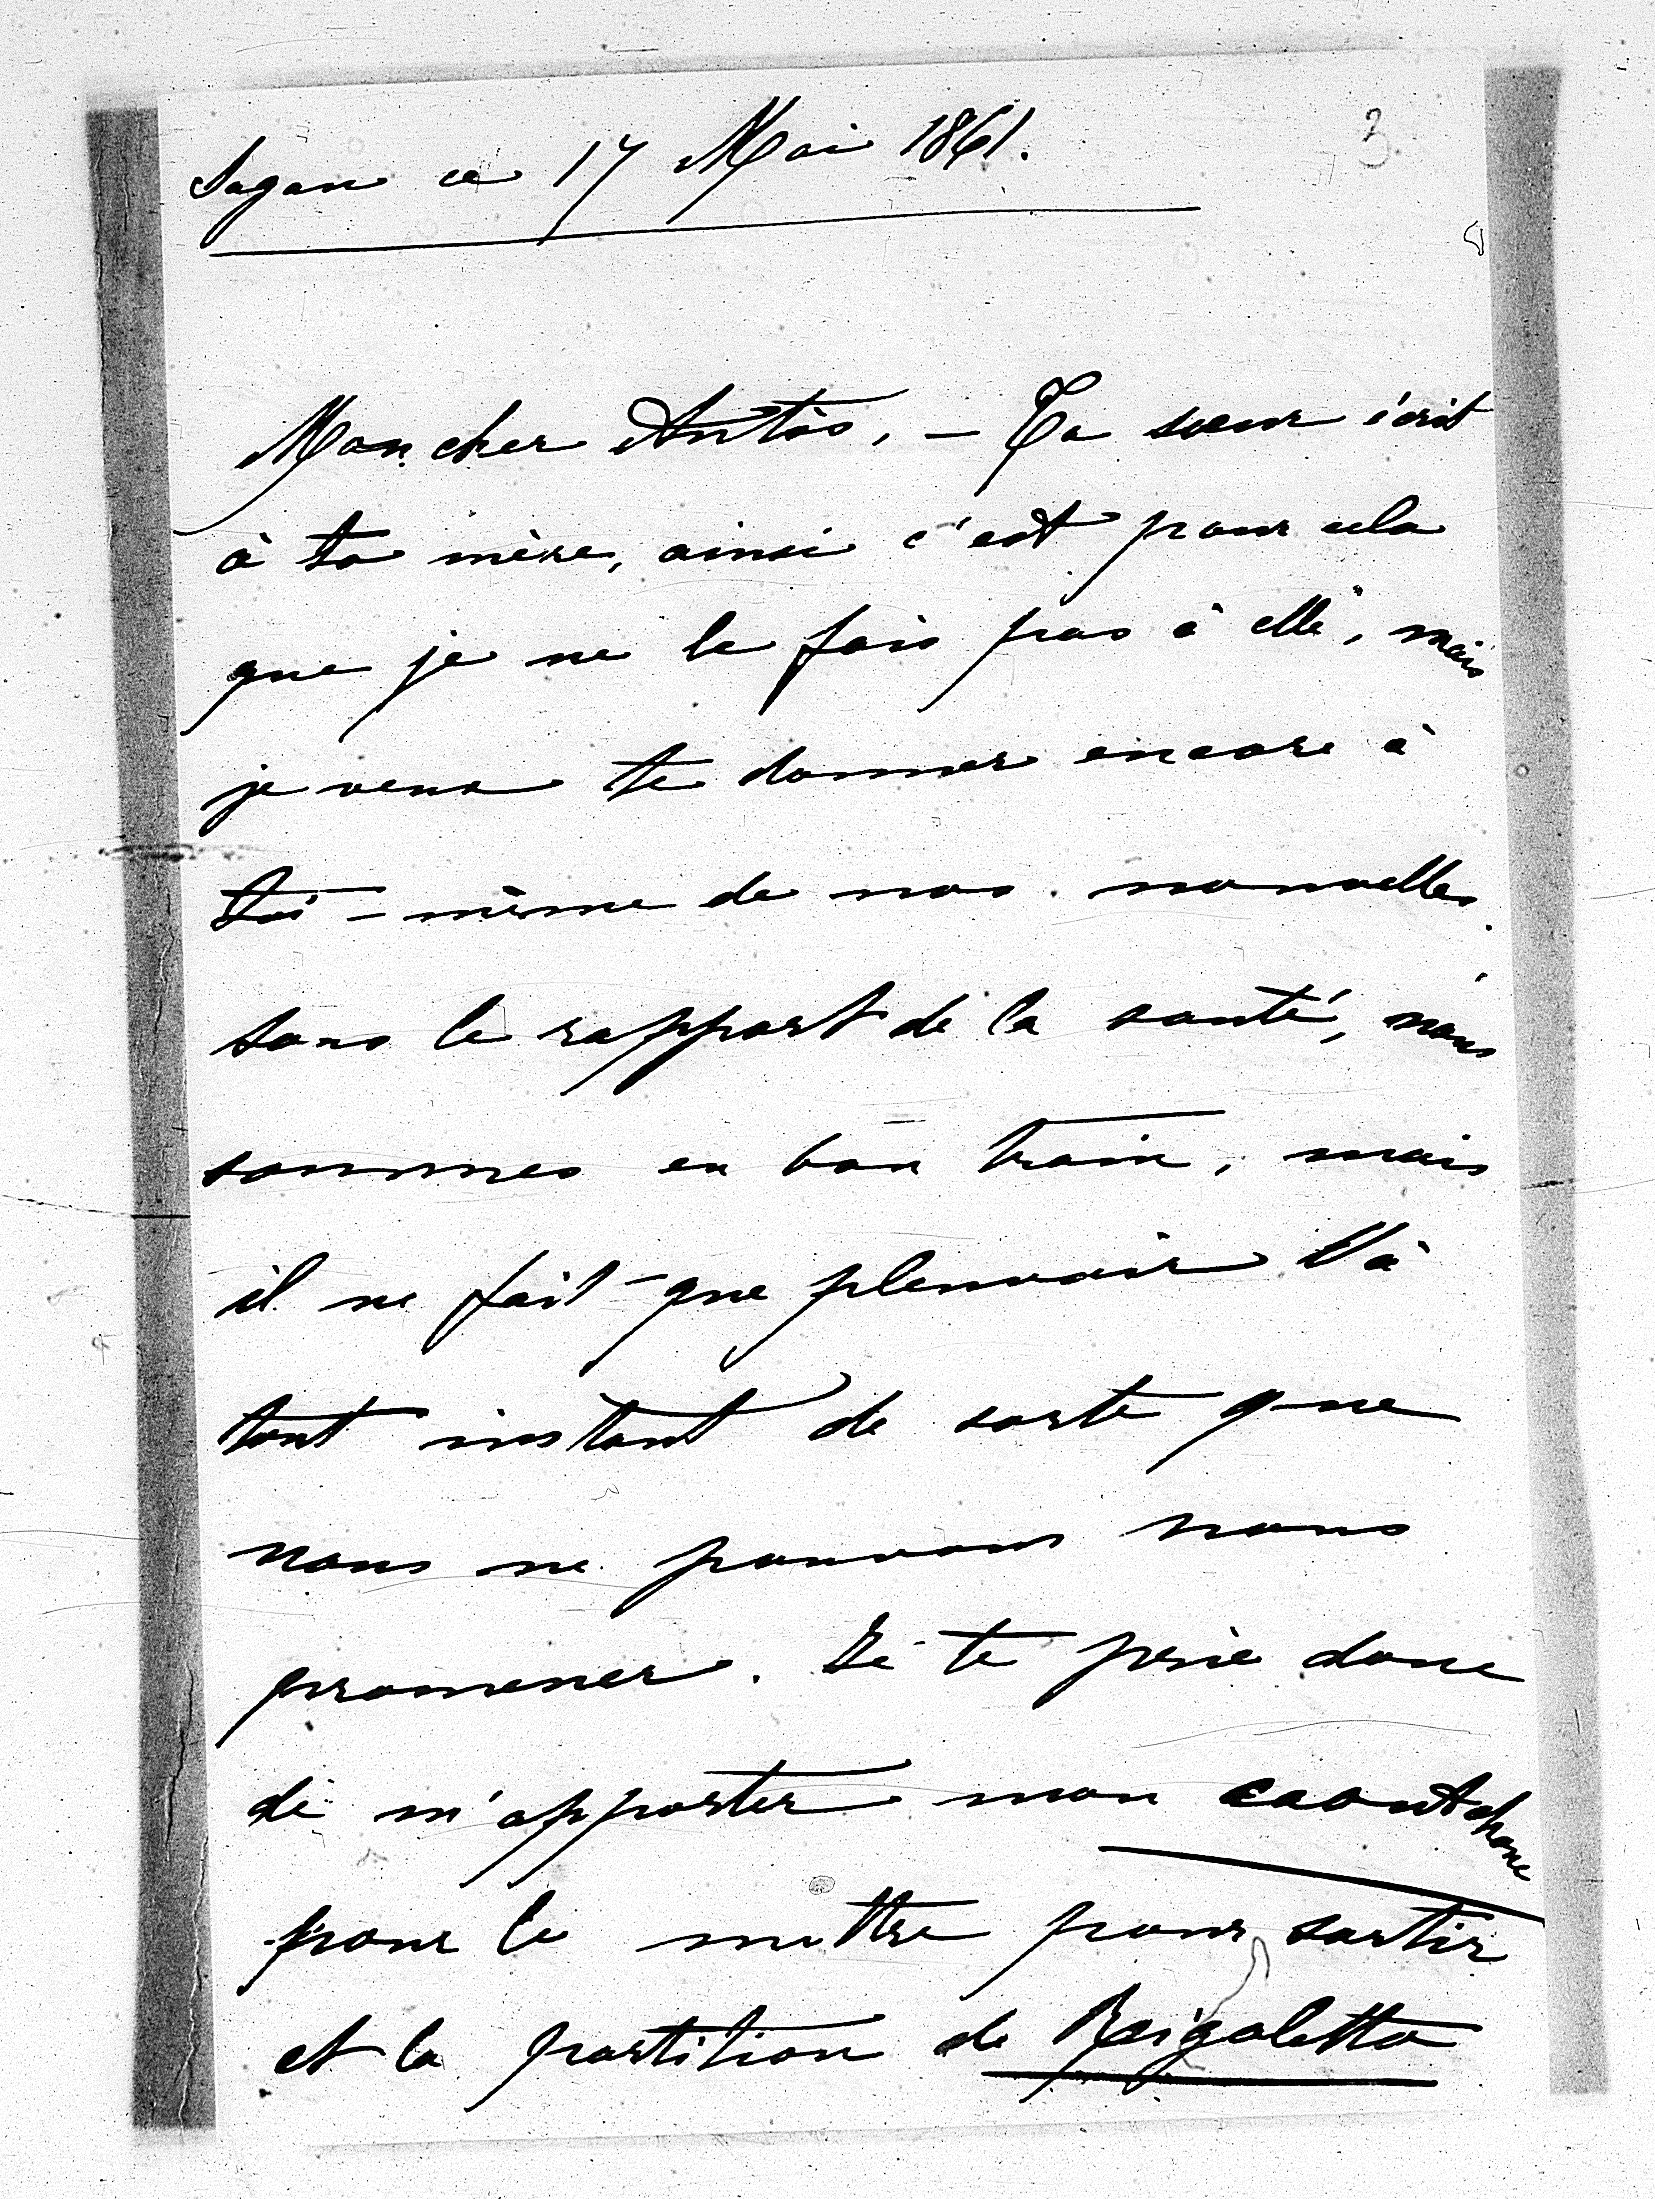 Sagan ce 17 Mai 1861.
3
Mon cher Antos, – Ta soeur écrit
à ta mère, ainsi c'est pour cela
que je ne le fais pas à elle, mais
je veux te donner encore à
toi-même de nos nouvelles.
Sous le rapport de la santé, nous
sommes en bon train, mais
il ne fait que pleuvoir à
tout instant de sorte que
nous ne pouvons nous
promener. Je te prie donc
de m'apporter mon caoutchouc
pour le mettre pour sortir
et la partition de Rigoletto